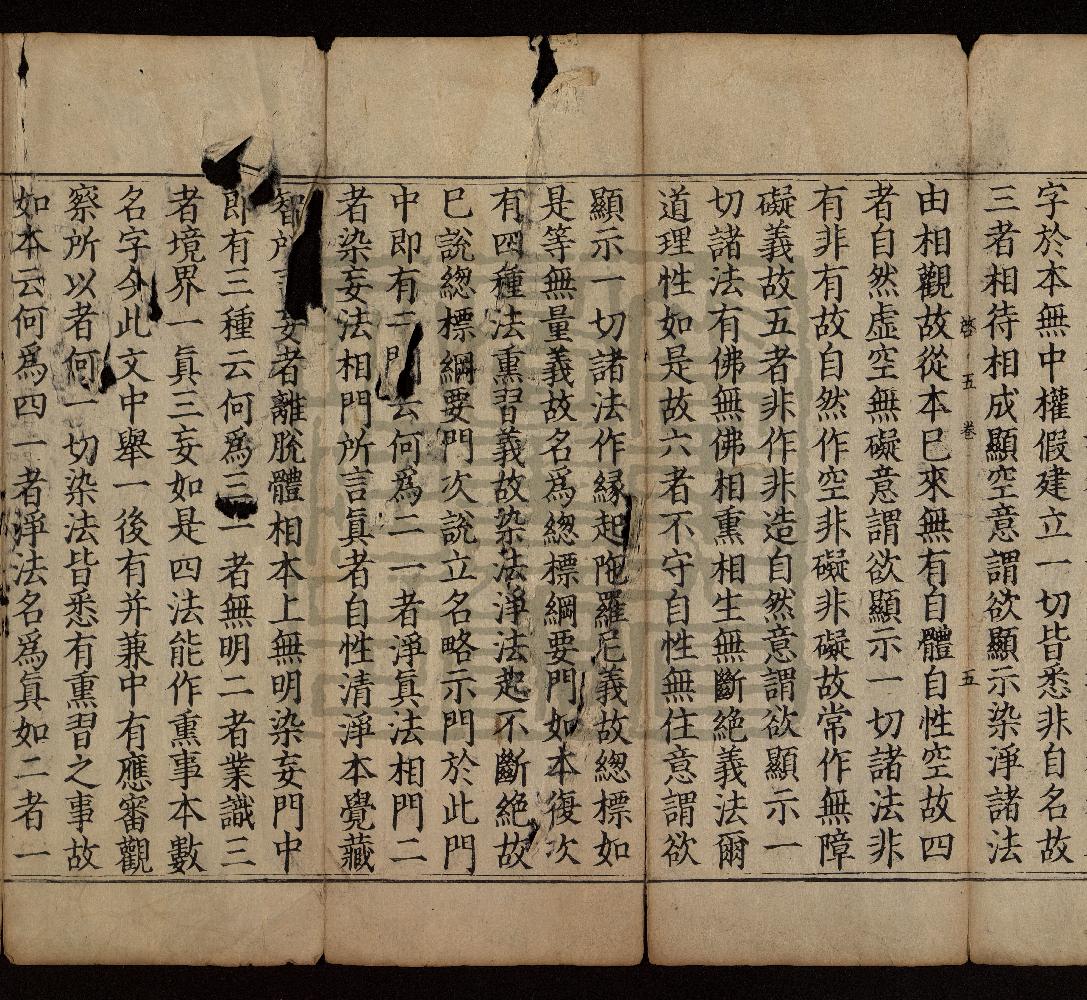 字於本無中權假建立一切皆悉非自名故
三者相待相成顯空意謂欲顯示染淨諸法
啓 五 卷 五
由相觀故從本已來無有自體自性空故四
者自然虛空無礙意謂欲顯示一切諸法非
有非有故自然作空非礙非礙故常作無障
礙義故五者非作非造自然意謂欲顯示一
切諸法有佛無佛相熏相生無斷絕義法爾
道理性如是故六者不守自性無住意謂欲
顯示一切諸法作緣起陀羅尼義故總標如
是等無量義故名爲總標綱要門如本復次
有四種法熏習義故染法淨法起不斷絕故
已說總標綱要門次說立名略示門於此門
中即有二門云何爲二一者淨眞法相門二
者染妄法相門所言眞者自性清淨本覺藏
智所言妄者離脫體相本上無明染妄門中
即有三種云何爲三一者無明二者業識三
者境界一眞三妄如是四法能作熏事本數
名字今此文中舉一後有并兼中有應審觀
察所以者何一切染法皆悉有熏習之事故
如本云何爲四一者淨法名爲眞如二者一